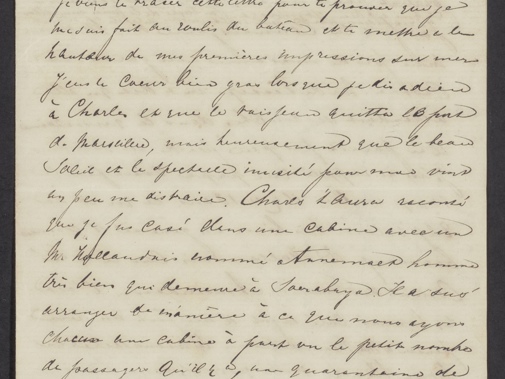 je viens te tracer cette lettre pour te prouver que je
me suis fait au roulis du bateau et te mettre à la
hauteur de mes premières impressions sur mer
J'eus le coeur bien gros lorsque je dis adieu
à Charles et que le vaisseau quitta le port
de Marseille, mais heureusement que le beau
Soleil et le spectacle inusité pour moi vint
un peu me distraire. Charles t'aura raconté
que je fus casé dans une cabine avec un
M. Hollandais nommé Annemaet homme
très bien qui demeure à Soerabaya. Il a su
arranger de manière à ce que nous ayons
chacun une cabine à part vu le petit nombre
de passagers qu'il y a, une quarantaine de